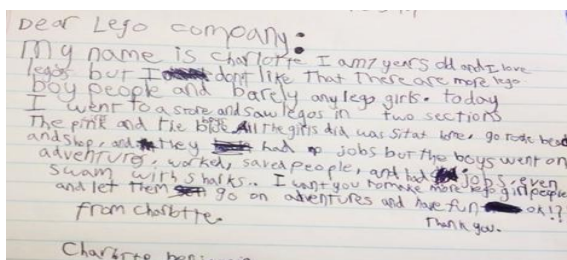 Dear Lego company:
My name is Charlotte I am 7 years old and I love
legos but I dont like that there are more lego
boy people and barely any lego girls. today
I went to a store and saw legos in two sections
The pink and the blue All the girls did was sit at home, go to the beach
and shop, and they had no jobs but the boys went on
adventures, worked, saved people, and had jobs, even
swam with sharks.. I want you to make more lego girl people
and let them go on adventures and have fun ok!?
from charlotte.
Thank you.
Charlotte